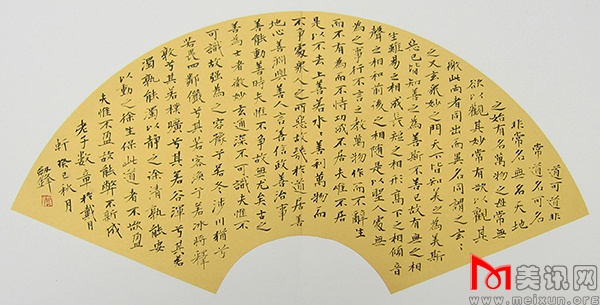 道可道非
常道名可名
非常名無名天地
之始有名萬物之母常無
欲以觀其妙常有欲以觀其
徼此兩者同出而異名同謂之玄〻
之又玄衆妙之門天下皆知美之為美斯
惡已皆知善之為善斯不善已故有無之相
生難易之相成長短之相形高下之相傾音
聲之相和前後之相隨是以聖人處無
為之事行不言之教萬物作而不辭生
而不有為而不恃功成不居夫惟不居
是以不去上善若水〻善利萬物而
不爭處衆人之所惡故幾於道居善
地心善淵與善人言善信政善治事
善能動善時夫惟不爭故無尤矣古之
善為士者微妙玄通深不可識夫惟不
可識故強為之容豫兮若冬涉川猶兮
若畏四鄰儼兮其若客渙兮若冰將釋
敦兮其若樸曠兮其若谷渾兮其若
濁孰能濁以靜之徐清孰能安
以動之徐生保此道者不欲盈
夫惟不盈故能弊不新成
老子數章於戴月
軒癸巳秋月
美讯网
www.meixun.org